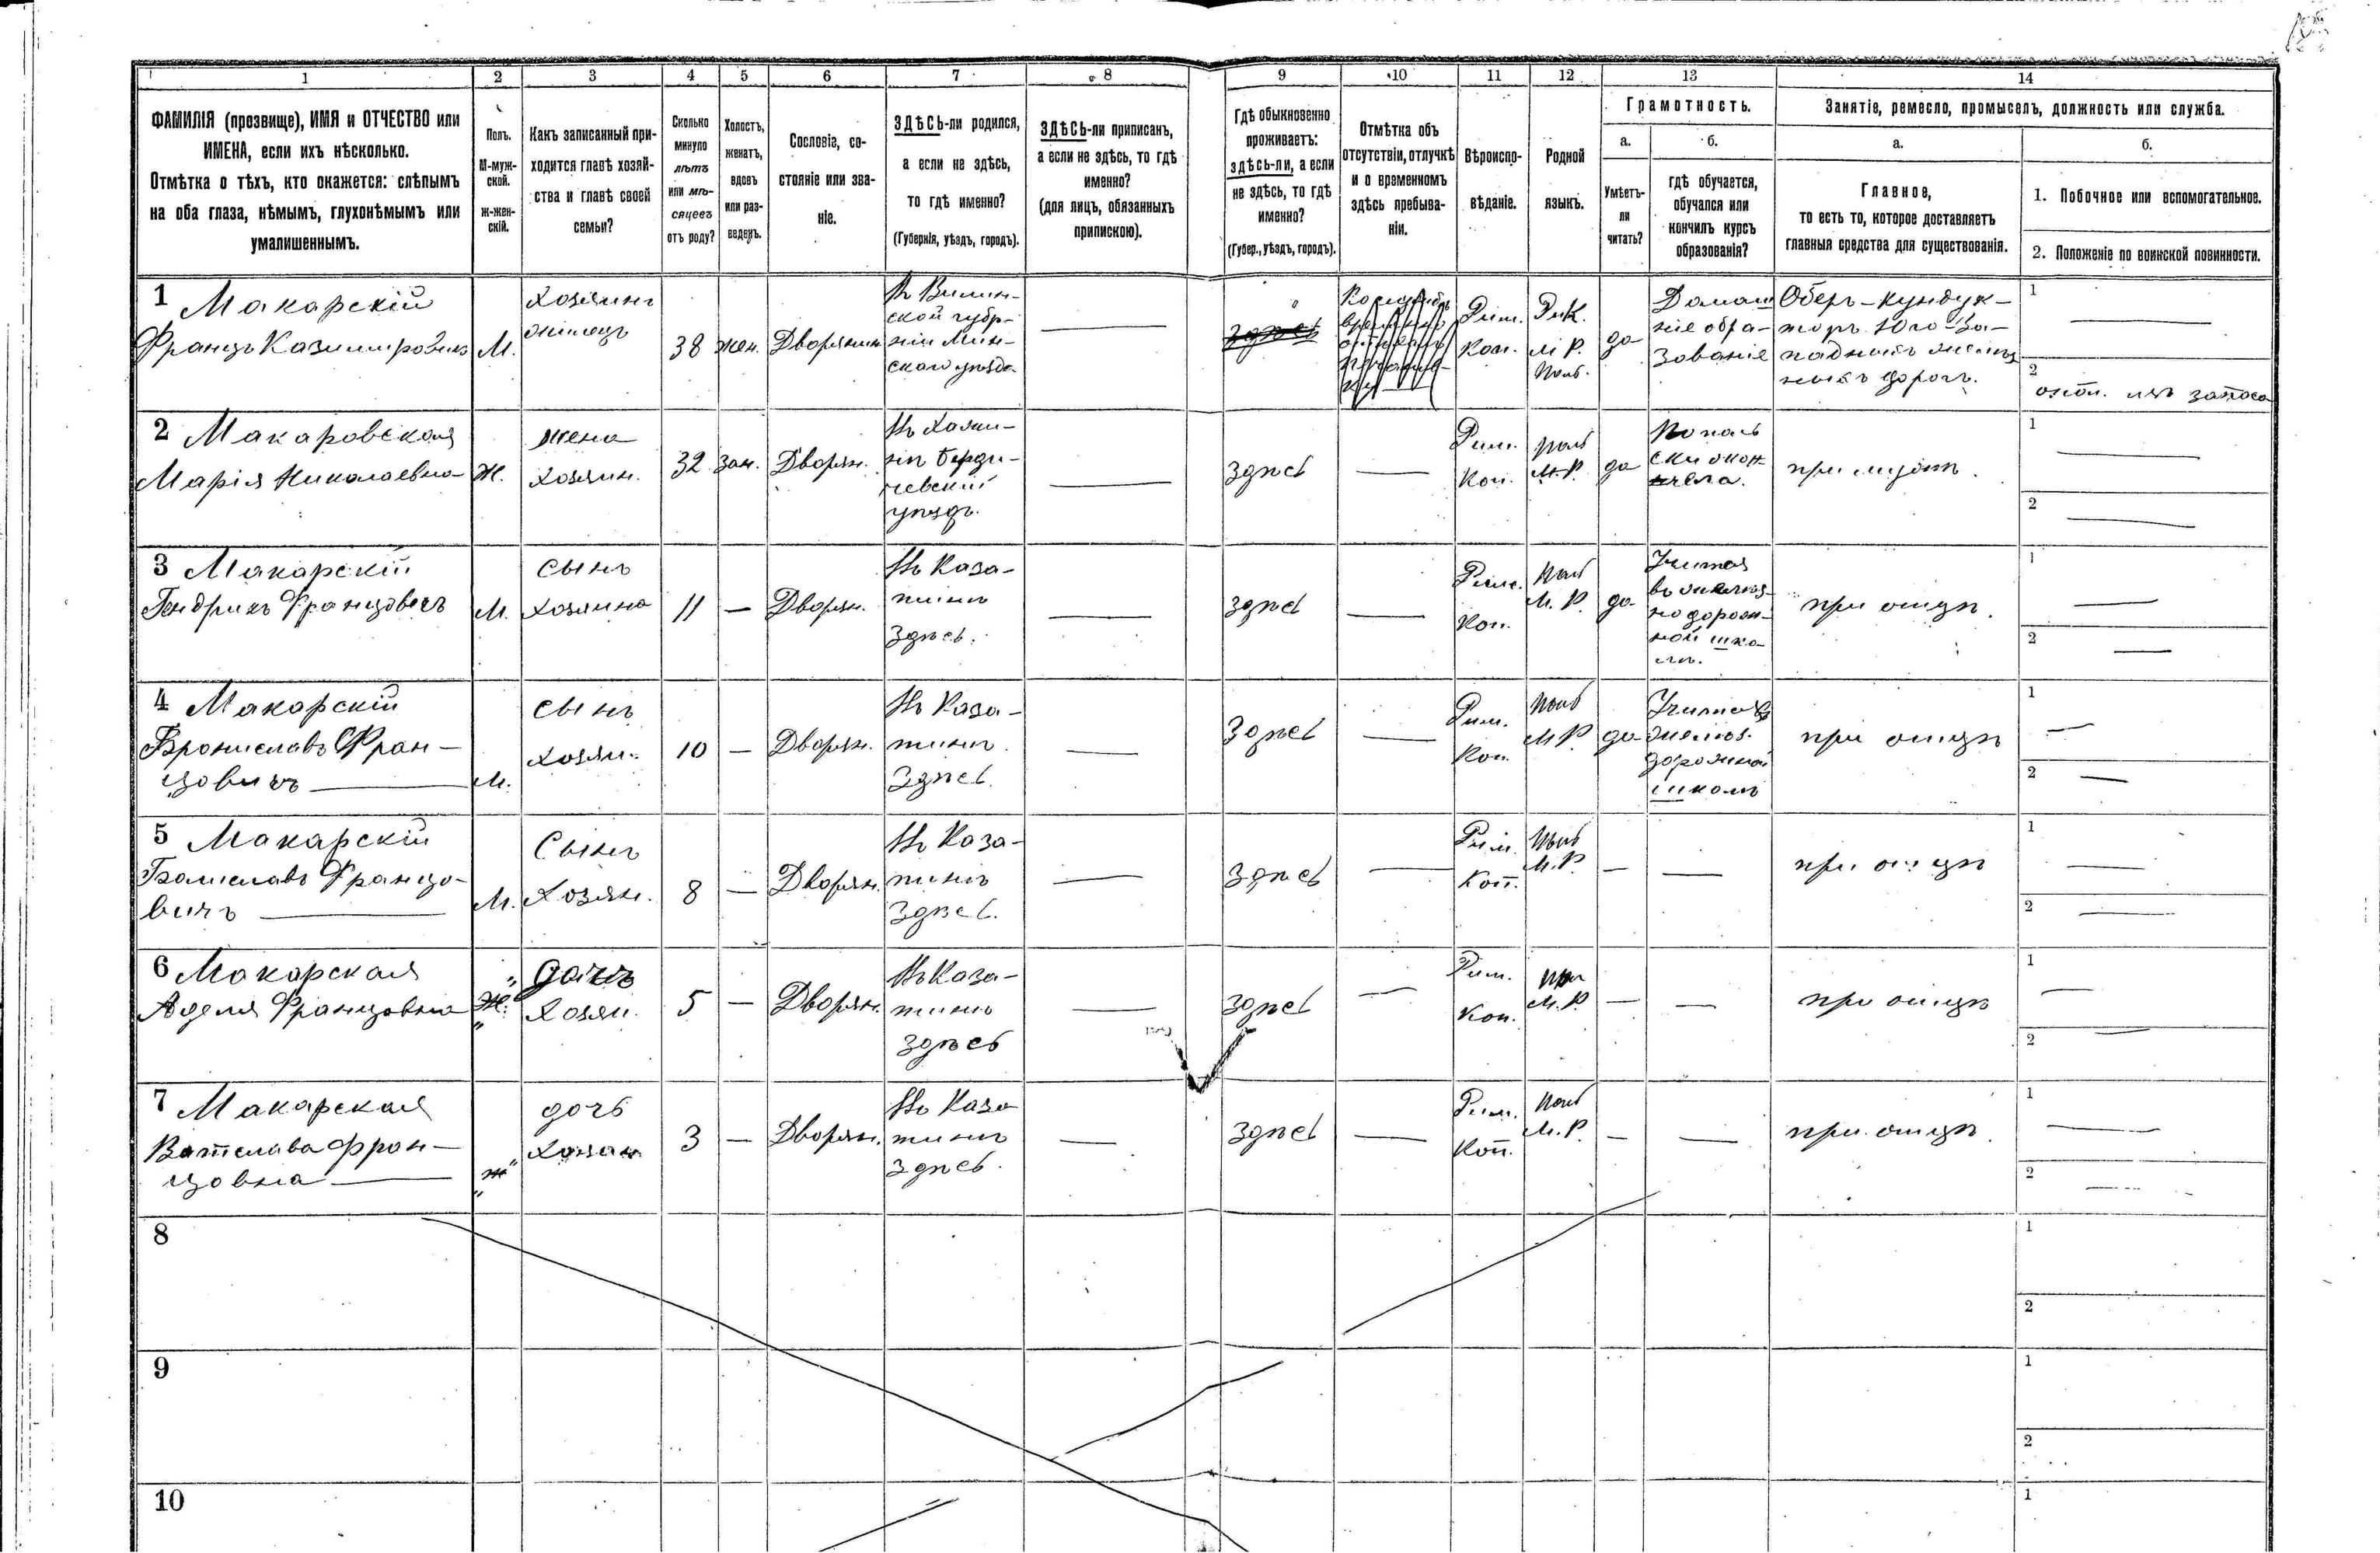 1 2 3 4 5 6 7 8 9 10 11 12 13 14
ФАМИЛІЯ (прозвище), ИМЯ и ОТЧЕСТВО или
ИМЕНА, если ихъ нѣсколько.
Отмѣтка о тѣхъ, кто окажется: слѣпымъ
на оба глаза, нѣмымъ, глухонѣмымъ или
умалишеннымъ.
Полъ.
М-муж-
ской.
Ж-жен-
скій.
Какъ записанный при-
ходится главѣ хозяй-
ства и главѣ своей
семьи?
Сколько
минуло
лѣтъ
или мѣ-
сяцевъ
отъ роду?
Холостъ,
женатъ,
вдовъ
или раз-
веденъ.
Сословіе, со-
стояніе или зва-
ніе.
ЗДѢСЬ-ли родился,
а если не здѣсь,
то гдѣ именно?
(Губернія, уѣздъ, городъ).
ЗДѢСЬ-ли приписанъ,
а если не здѣсь, то гдѣ
именно?
(для лицъ, обязанныхъ
припискою).
Гдѣ обыкновенно
проживаетъ:
здѣсь-ли, а если
не здѣсь, то гдѣ
именно?
(Губер., уѣздъ, городъ).
Отмѣтка объ
отсутствіи, отлучкѣ
и о временномъ
здѣсь пребыва-
ніи.
Вѣроиспо-
вѣданіе.
Родной
языкъ.
Грамотность.
а.
Умѣетъ-
ли
читать?
б.
гдѣ обучается,
обучался или
кончилъ курсъ
образованія?
Занятіе, ремесло, промыселъ, должность или служба.
а.
Главное,
то есть то, которое доставляетъ
главныя средства для существованія.
б.
1. Побочное или вспомогательное.
2. Положеніе по воинской повинности.
1 Макарскій
Францъ Казимировичъ
М.
Хозяинъ
38
жен.
Дворянин
ской губр-
ніи Мин-
скаго уѣзда
здѣсь
Рим.
Кот.
да
Домаш
ніе обра-
зованіе
Оберъ-кундук-
торъ Юго-За-
падныхъ
ныхъ дорогъ.
1
2
изъ запаса
2 Макаровская
Марія Николаевна
Ж.
жена
хозяин.
32
зам.
Дворян.
уѣздъ.
здѣсь
Рим.
Кот.
М. Р.
да
при мужѣ.
1
2
3 Макарскій
Гендрикъ Францовичъ
М.
сынъ
хозяина
11
Дворян.
Въ Каза-
тинѣ
здѣсь.
здѣсь
Рим.
Кот.
М. Р.
да
но дорож-
ной шко-
лѣ.
при отцѣ.
1
2
4 Макарскій
Брониславъ Фран-
цовичъ
М.
сынъ
хозяи.
10
Дворян.
Въ Каза-
тинѣ.
здѣсь.
здѣсь
Рим.
Кот.
М. Р.
да
дорожной
школѣ
при отцѣ
1
2
5 Макарскій
Францо-
вичъ
М.
Сынъ
Хозяин.
8
Дворян.
Въ Каза-
тинѣ
здѣсь.
здѣсь
Рим.
Кот.
М. Р.
при отцѣ
1
2
6 Макарская
Аделя Францовна
Ж.
дочъ
Хозяи.
5
Дворян.
Въ Каза-
тинѣ
здѣсь
здѣсь
Рим.
Кот.
М. Р.
при отцѣ
1
2
7 Макарская
Фран-
цовна
ж
дочь
3
Дворян.
Въ Каза
тинѣ
здѣсь.
здѣсь
Рим.
Кот.
М. Р.
при отцѣ.
1
2
8
1
2
9
1
2
10
1